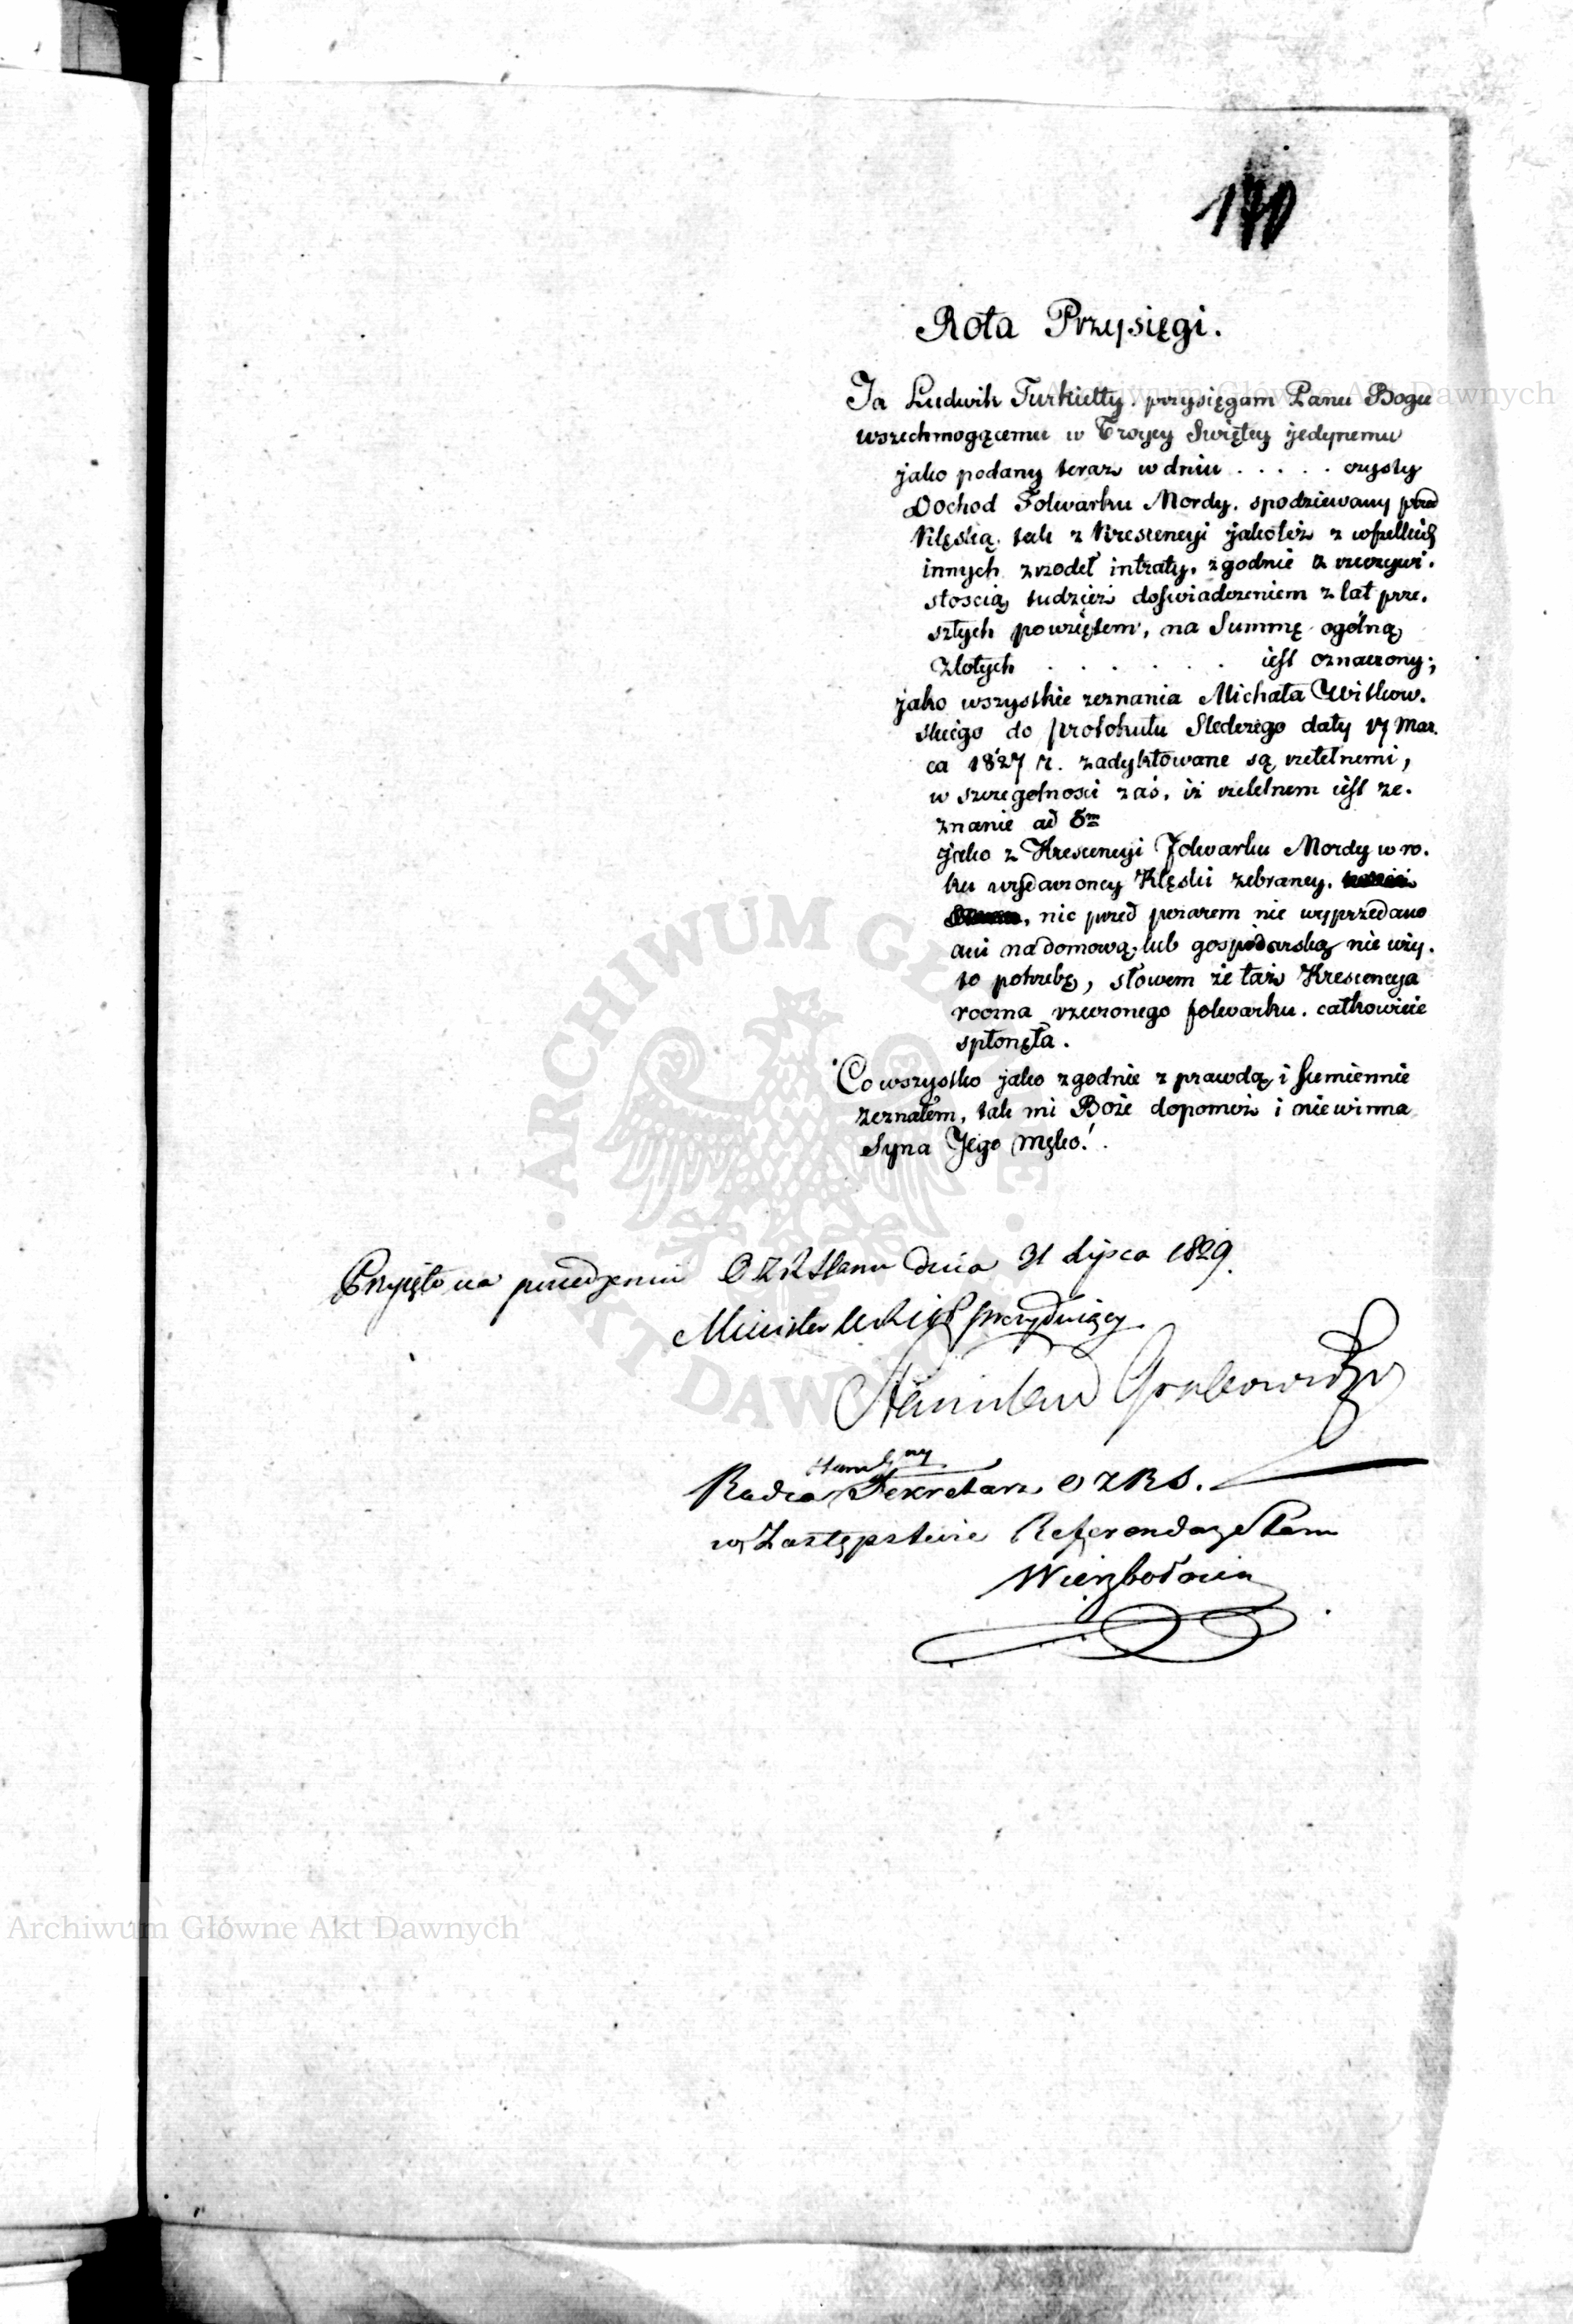 170
Rota Przysięgi.
Ja Ludwik Turkiełty. przysięgam Panu Bogu
wszechmogącemu w Troycy Swiętey jedynemu
jako podany teraz w dniu . . . . . czysty
Dochod Folwarku Mordy, spodziewany przed
Klęską, tak z Krescencyi jakoteż z wszelkich
innych zrzodeł intraty, zgodnie z rzeczywi-
stoscią, tudzież doświadczeniem z lat prze-
szłych powziętem, na Summę ogólną
Złotych . . . . . . jest oznaczony;
jako wszystkie zeznania Michała Witkow-
skiego do protokułu Sledczego daty 17 Mar-
ca 1827 r. zadyktowane są rzetelnemi,
w szczegolnosci zaś, iż rzetelnem iest ze-
znanie ad 5m
jako z Krescencyi Folwarku Mordy w ro-
ku wydarzoney Klęski zebraney,
nic przed pożarem nie wyprzedano
ani na domową lub gospodarską nie uży-
to potrzebę, słowem że taż Krescencya
roczna rzeczonego folwarku, całkowicie
spłonęła.
Co wszystko jako zgodnie z prawdą i sumiennie
zeznałem, tak mi Boże dopomóż i niewinna
Syna Jego Męko!
Przyjęto na posiedzeniu O Z R Stanu dnia 31 Lipca 1829.
Minister prezyduiący
Stanisław Grabowski
Radca Sekretarz O Z R S.
w Zastępstwie Referendarz Stanu
Wierzbołowicz
Archiwum Główne Akt Dawnych
ARCHIWUM GŁÓWNE · AKT DAWNYCH ·
Archiwum Główne Akt Dawnych